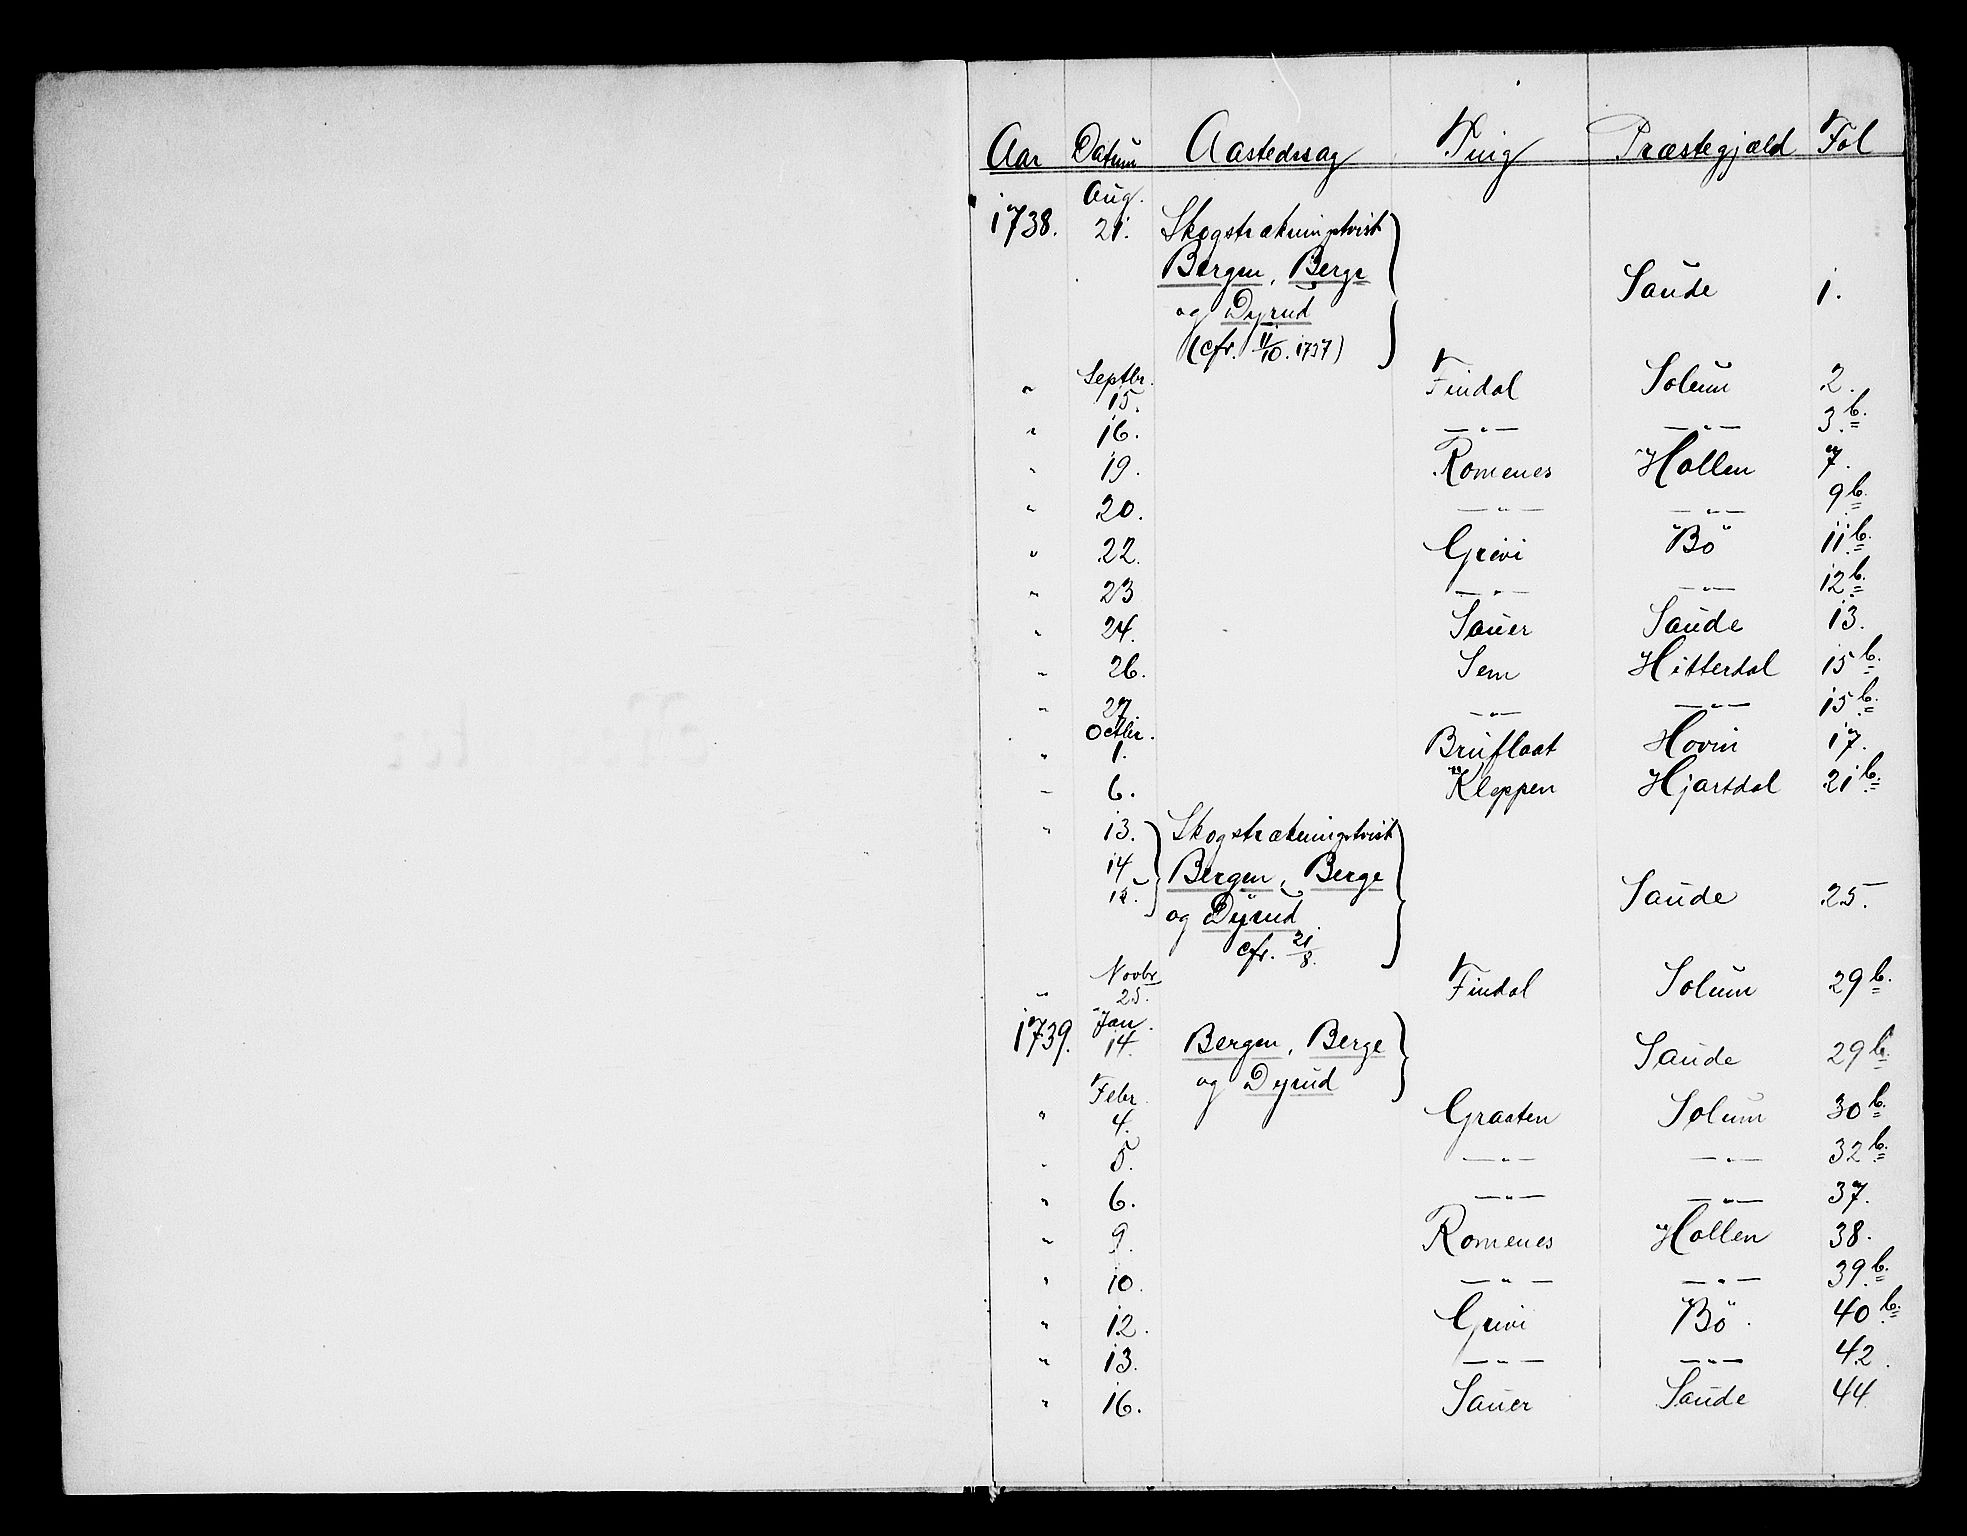 Aar Datum Aastedssag Ting Præstegjæld Fol
Aug.
1738. 21. Skogstrækningstvist
Bergen, Berge Saude 1.
og Dyrud
(cfr. 11/10. 1737)
" Septbr. 15. Findal Solum 2.
" 16. —"— —"— 3 b.
" 19. Romenes Hollen 7.
" 20. —"— —"— 9 b.
" 22. Grivi Bö 11 b.
" 23 —"— —"— 12 b.
" 24. Sauer Saude 13.
" 26. Sem Hitterdal 15 b.
" 27. —"— —"— 15 b.
Octbr.
" 1. Bruflaat Hovin 17.
" 6. Kleppen Hjartdal 21 b.
" 13. Skogstrækningstvist
14 Bergen, Berge
15. Saude 25.
og Dyrud
cfr. 21/8.
Novbr
" 25. Findal Solum 29 b.
Jan.
1739. 14. Bergen, Berge Saude 29 b.
og Dyrud
Febr.
" 4. Graaten Solum 30 b.
" 5. —"— —"— 32 b.
" 6. —"— —"— 37.
" 9. Romenes Hollen 38.
" 10. —"— —"— 39 b.
" 12. Grivi Bö 40 b.
" 13. —"— —"— 42.
" 16. Sauer Saude 44